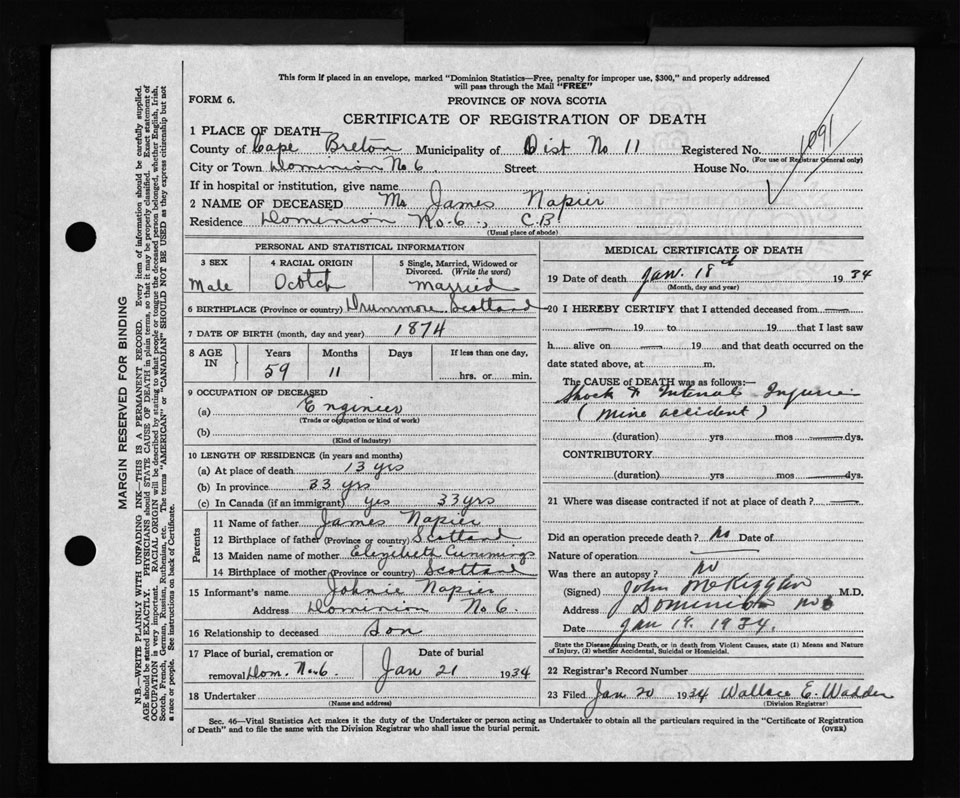 This form if placed in an envelope, marked "Dominion Statistics—Free, penalty for improper use, $300," and properly addressed
will pass through the Mail "FREE"
FORM 6.
PROVINCE OF NOVA SCOTIA
CERTIFICATE OF REGISTRATION OF DEATH
1091
1 PLACE OF DEATH—
County of Cape Breton Municipality of Dist No 11 Registered No.
(For use of Registrar General only)
City or Town Dominion No 6 Street House No.
If in hospital or institution, give name
2 NAME OF DECEASED Mr James Napier
Residence Dominion No. 6., C.B.
(Usual place of abode)
PERSONAL AND STATISTICAL INFORMATION
3 SEX
Male
4 RACIAL ORIGIN
Scotch
5 Single, Married, Widowed or
Divorced. (Write the word)
Married
6 BIRTHPLACE (Province or country) Drummore Scotland
7 DATE OF BIRTH (month, day and year) 1874
8 AGE IN
Years Months Days If less than one day,
59 11 hrs. or min.
9 OCCUPATION OF DECEASED
(a) Engineer
(Trade or occupation or kind of work)
(b)
(Kind of industry)
10 LENGTH OF RESIDENCE (in years and months)
(a) At place of death 13 yrs
(b) In province 33 yrs
(c) In Canada (if an immigrant) yes 33 yrs
Parents
11 Name of father James Napier
12 Birthplace of father (Province or country) Scotland
13 Maiden name of mother Elizibeth Cummings
14 Birthplace of mother (Province or country) Scotland
15 Informant's name Johnie Napier
Address Dominion No 6.
16 Relationship to deceased Son
17 Place of burial, cremation or Date of burial
removal Dom. No 6. Jan 21 1934
18 Undertaker
(Name and address)
MEDICAL CERTIFICATE OF DEATH
19 Date of death Jan. 18th 1934
(Month, day and year)
20 I HEREBY CERTIFY that I attended deceased from
19 to 19 that I last saw
h alive on 19 and that death occurred on the
date stated above, at m.
The CAUSE OF DEATH was as follows:—
Shock & Internal Injuries
(mine accident)
(duration) yrs mos dys.
CONTRIBUTORY
(duration) yrs. mos. dys.
21 Where was disease contracted if not at place of death?
Did an operation precede death? No Date of
Nature of operation
Was there an autopsy? no
(Signed) John McKiggan M.D.
Address Dominion No 6
Date Jan 19. 1934.
State the Disease causing Death, or in death from Violent Causes, state (1) Means and Nature
of Injury, (2) whether Accidental, Suicidal or Homicidal.
22 Registrar's Record Number
23 Filed Jan 20 1934 Wallace E. Wadden
(Division Registrar)
Sec. 46—Vital Statistics Act makes it the duty of the Undertaker or person acting as Undertaker to obtain all the particulars required in the "Certificate of Registration
of Death" and to file the same with the Division Registrar who shall issue the burial permit.
(OVER)
MARGIN RESERVED FOR BINDING
N.B.—WRITE PLAINLY WITH UNFADING INK—THIS IS A PERMANENT RECORD. Every item of information should be carefully supplied.
AGE should be stated EXACTLY. PHYSICIANS should STATE CAUSE OF DEATH in plain terms, so that it may be properly classified. Exact statement of
OCCUPATION is very important. RACIAL ORIGIN will be described by stating to what people or tongue the deceased person belonged, whether English, Irish,
Scotch, French, German, Russian, Ruthenian, etc. The terms "AMERICAN" or "CANADIAN" SHOULD NOT BE USED as they express citizenship but not
a race or people. See instructions on back of Certificate.